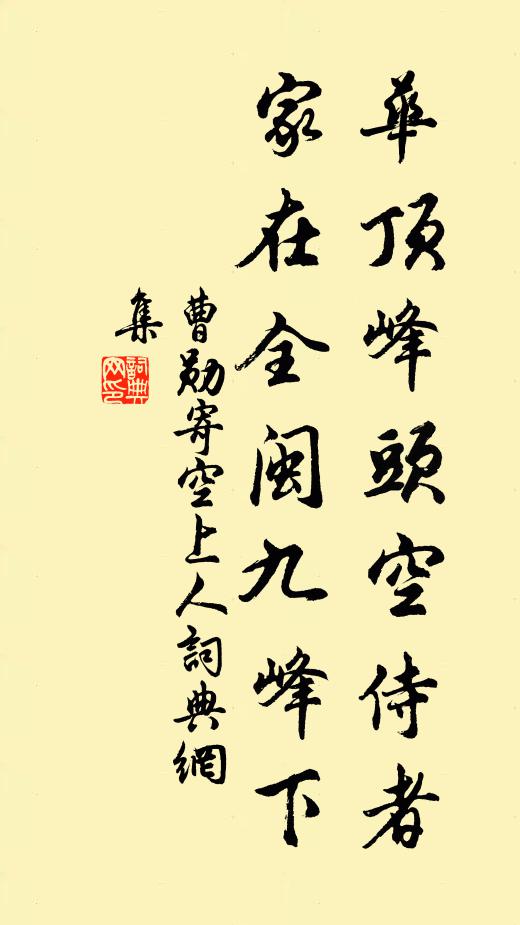 華顶峰頭空侍者
家在全閩九峰下
曹勋寄空上人詞典網
集
詞典
网印